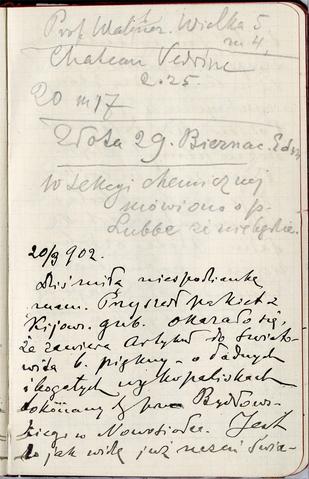 Prof. Wielka 5
m 4.
Chateau Vedrine
2.25.
20 m 17
Złota 29. Biernac.
W Sekcyi chemicznej
mówiono o p.
Lubbe że nie będzie.
20/9 902.
Dziś miłą niespodziankę
mam. Przyszed pakiet z
Kijow. gub. okazało się,
że zawiera Artykuł do Świato-
wita b. piękny – o ładnych
i bogatych wykopaliskach
dokonany przez Bydłow-
skiego w Nowosiółce. Jest
to jak widzę już nasień Świa-